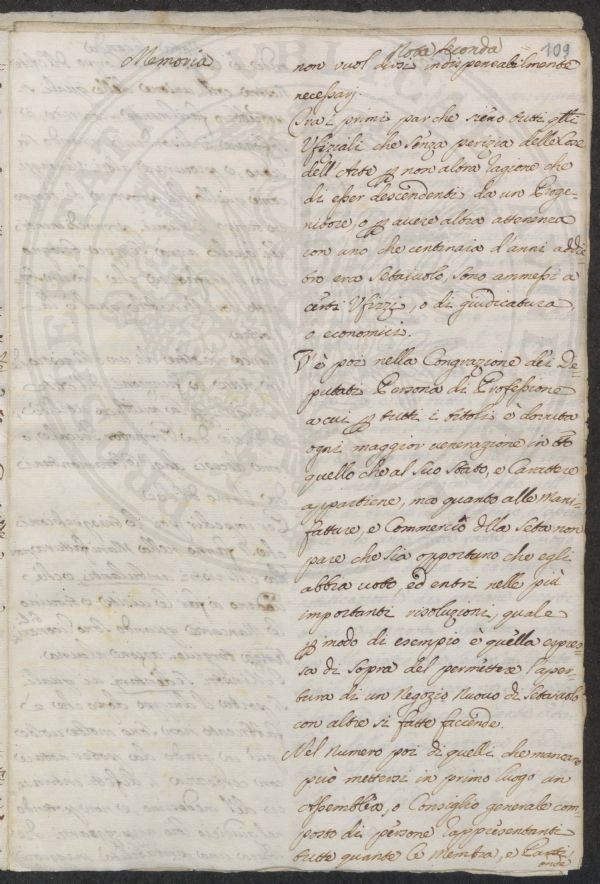 Nota seconda
109
Memoria
non vuol dirsi indispensabilmente
necessarj.
Tra i primi par che sieno tutti gli
Ufiziali che senza perizia delle Cose
dell'Arte p non altra ragione che
di esser descendenti da un Proge-
nitore o p avere altra attenenza
con uno che centinaia d'anni addie
tro era Setaiuolo, sono ammessi a
certi Ufizzi, o di giudicatura,
o economici.
V'è poi nella Congrazione dei De-
putati Persona di Professione
a cui p tutti i titoli è dovuta
ogni maggior venerazione in tto
quello che al suo Stato, e Carattere
appartiene, ma quanto alle Mani-
fatture, e Commercio della Seta non
pare che sia opportuno che egli
abbia voto, ed entri nelle più
importanti risoluzioni, quale
p modo di esempio è quella espres-
sa di Sopra del permettere l'aper-
tura di un Negozio Nuovo di Setaiuolo
con altre si fatte faccende.
Nel numero poi di quelli che mancano
può mettersi in primo luogo un
Assemblèa, o Consiglio generale com-
posto di persone rappresentanti
tutte quante le Membra, e Parti
onde